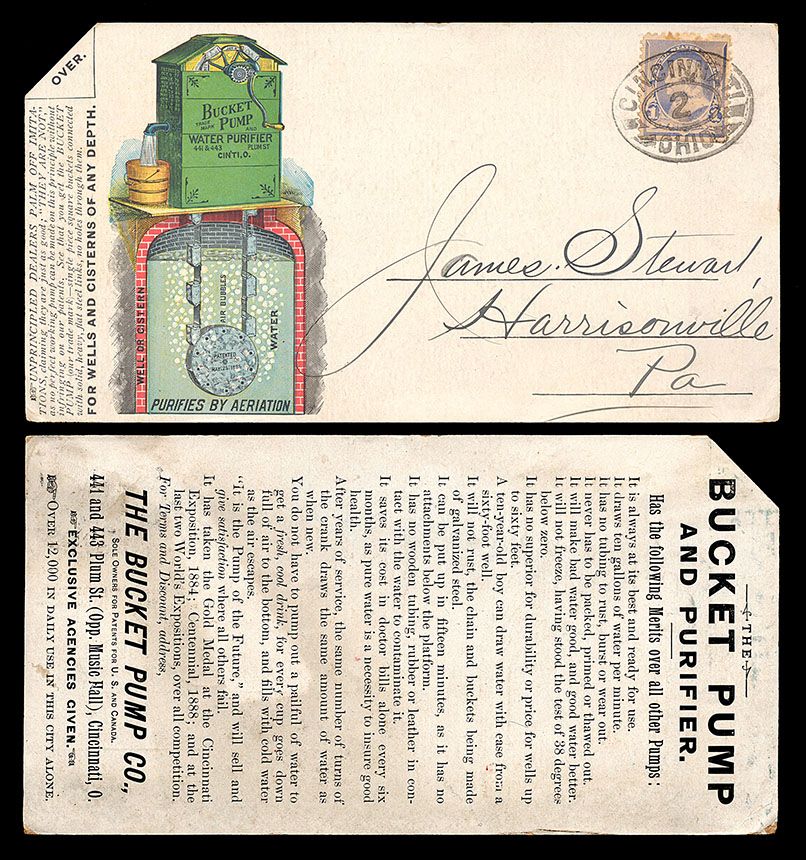 OVER.
☞ UNPRINCIPLED DEALERS PALM OFF IMITA-
TIONS, claiming they are just as good; "THEY ARE NOT,"
as no perfect working pump can be made on this principle without
infringing on our patents. See that you get the "BUCKET
PUMP (our trade mark—single piece square buckets connected
with solid, heavy, flat steel links, no holes through them.
FOR WELLS AND CISTERNS OF ANY DEPTH.
BUCKET
TRADE MARK PUMP AND
WATER PURIFIER
441 & 443 PLUM ST
CIN'TI, O.
WELL OR CISTERN
AIR BUBBLES
WATER
PATENTED
PURIFIES BY AERIATION
CINCINNATI
2
OHIO
James. Stewart,
Harrisonville
Pa
THE
BUCKET PUMP
AND PURIFIER.
Has the following Merits over all other Pumps:
It is always at its best and ready for use.
It draws ten gallons of water per minute.
It has no tubing to rust, burst or wear out.
It never has to be packed, primed or thawed out.
It will make bad water good, and good water better.
It will not freeze, having stood the test of 38 degrees
below zero.
It has no superior for durability or price for wells up
to sixty feet.
A ten-year-old boy can draw water with ease from a
sixty-foot well.
It will not rust, the chain and buckets being made
of galvanized steel.
It can be put up in fifteen minutes, as it has no
attachments below the platform.
It has no wooden tubing, rubber or leather in con-
tact with the water to contaminate it.
It saves its cost in doctor bills alone every six
months, as pure water is a necessity to insure good
health.
After years of service, the same number of turns of
the crank draws the same amount of water as
when new.
You do not have to pump out a pailful of water to
get a fresh, cool drink, for every cup goes down
full of air to the bottom, and fills with cold water
as the air escapes.
"It is the Pump of the Future," and will sell and
give satisfaction where all others fail.
It has taken the Gold Medal at the Cincinnati
Exposition, 1884; Centennial, 1888; and at the
last two World's Expositions, over all competition.
For Terms and Discount, address,
THE BUCKET PUMP CO.,
SOLE OWNERS FOR PATENTS FOR U. S. AND CANADA.
441 and 443 Plum St. (Opp. Music Hall), Cincinnati, O.
☞ EXCLUSIVE AGENCIES GIVEN. ☜
☞ OVER 12,000 IN DAILY USE IN THIS CITY ALONE.